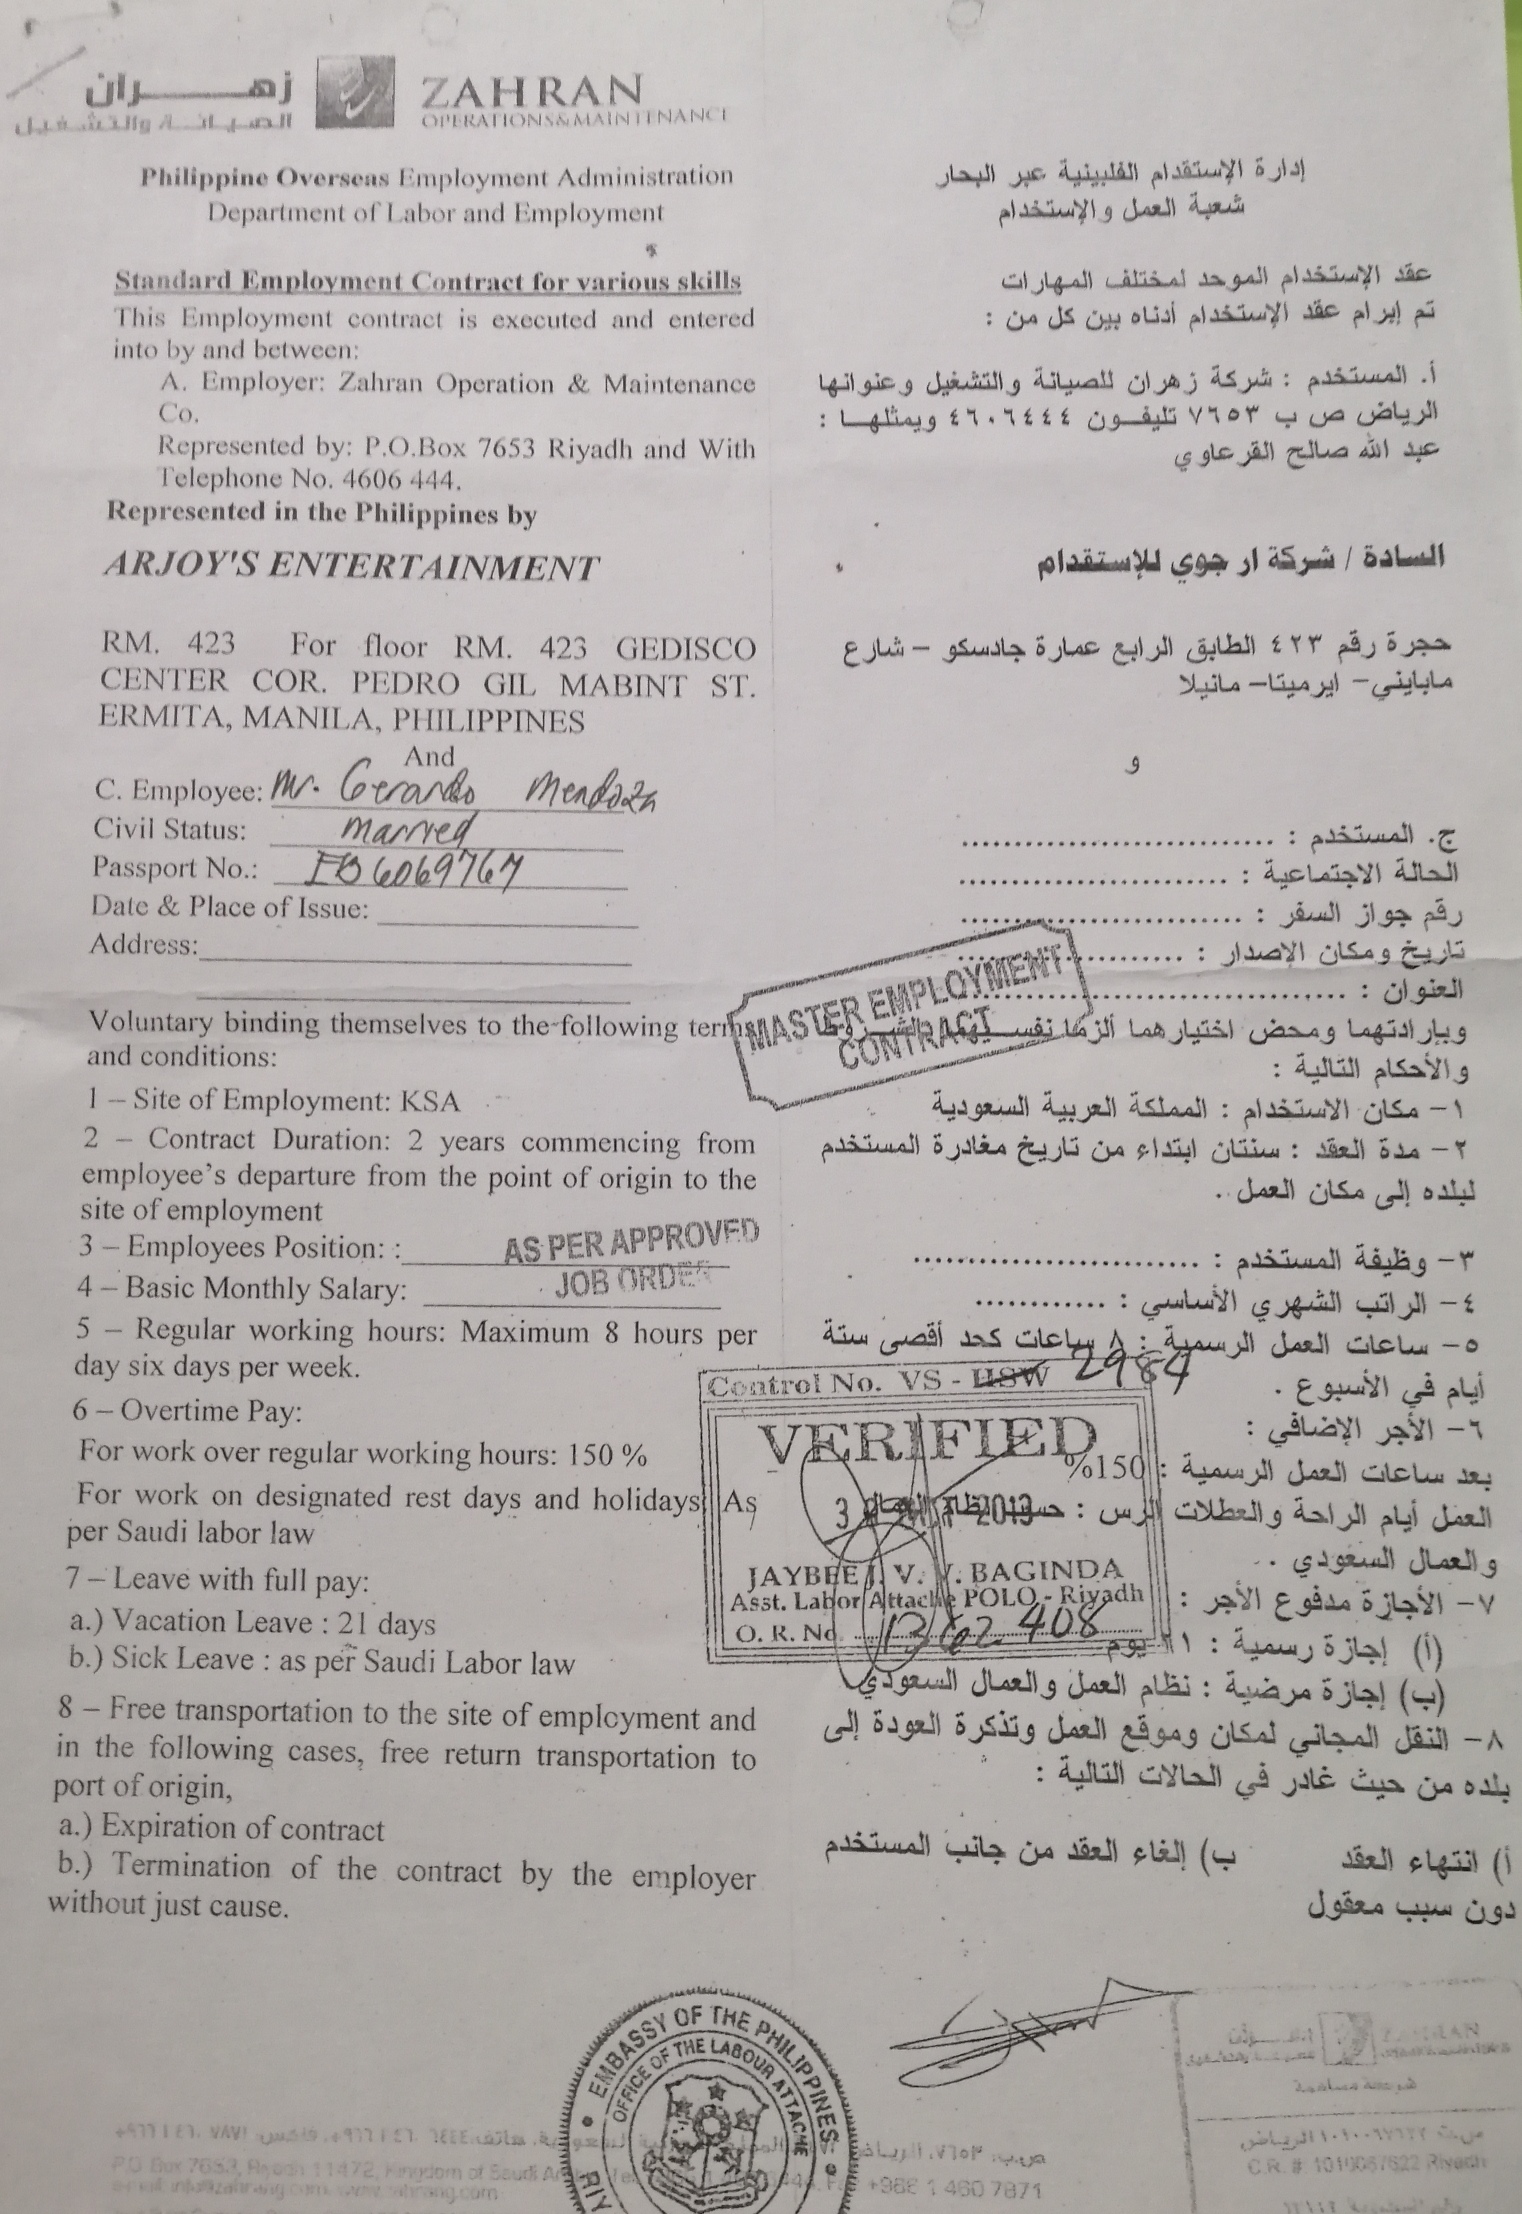 زهـــــــران
الصيانة والتشغيل
ZAHRAN
OPERATIONS&MAINTENANCE
Philippine Overseas Employment Administration
Department of Labor and Employment
Standard Employment Contract for various skills
This Employment contract is executed and entered
into by and between:
A. Employer: Zahran Operation & Maintenance
Co.
Represented by: P.O.Box 7653 Riyadh and With
Telephone No. 4606 444.
Represented in the Philippines by
ARJOY'S ENTERTAINMENT
RM. 423 For floor RM. 423 GEDISCO
CENTER COR. PEDRO GIL MABINT ST.
ERMITA, MANILA, PHILIPPINES
And
C. Employee: Mr. Gerardo Mendoza
Civil Status: Married
Passport No.: EB6069767
Date & Place of Issue:
Address:
Voluntary binding themselves to the following terms
and conditions:
1 – Site of Employment: KSA
2 – Contract Duration: 2 years commencing from
employee's departure from the point of origin to the
site of employment
3 – Employees Position: :
4 – Basic Monthly Salary:
AS PER APPROVED
JOB ORDER
5 – Regular working hours: Maximum 8 hours per
day six days per week.
6 – Overtime Pay:
For work over regular working hours: 150 %
For work on designated rest days and holidays: As
per Saudi labor law
7 – Leave with full pay:
a.) Vacation Leave : 21 days
b.) Sick Leave : as per Saudi Labor law
8 – Free transportation to the site of employment and
in the following cases, free return transportation to
port of origin,
a.) Expiration of contract
b.) Termination of the contract by the employer
without just cause.
إدارة الإستقدام الفلبينية عبر البحار
شعبة العمل والإستخدام
عقد الإستخدام الموحد لمختلف المهارات
تم إبرام عقد الإستخدام أدناه بين كل من :
أ. المستخدم : شركة زهران للصيانة والتشغيل وعنوانها
الرياض ص ب ٧٦٥٣ تليفـون ٤٦٠٦٤٤٤ ويمثلهـا :
عبد الله صالح القرعاوي
السادة / شركة ار جوي للإستقدام
حجرة رقم ٤٢٣ الطابق الرابع عمارة جادسكو – شارع
مابايني– ايرميتا– مانيلا
و
ج. المستخدم : ..............................
الحالة الاجتماعية : ..........................
رقم جواز السفر : ...........................
تاريخ ومكان الإصدار : .....................
العنوان : ....................................
MASTER EMPLOYMENT
CONTRACT
وبإرادتهما ومحض اختيارهما ألزما نفسيهما بالشروط
والأحكام التالية :
١– مكان الاستخدام : المملكة العربية السعودية
٢– مدة العقد : سنتان ابتداء من تاريخ مغادرة المستخدم
لبلده إلى مكان العمل .
٣– وظيفة المستخدم : ...........................
٤– الراتب الشهري الأساسي : ............
٥– ساعات العمل الرسمية : ٨ ساعات كحد أقصى ستة
أيام في الأسبوع .
٦– الأجر الإضافي :
بعد ساعات العمل الرسمية : 150%
العمل أيام الراحة والعطلات الرس : حسب نظام العمل
والعمال السعودي .
٧– الأجازة مدفوع الأجر :
(أ) إجازة رسمية : ٢١ يوم
(ب) إجازة مرضية : نظام العمل والعمال السعودي
٨– النقل المجاني لمكان وموقع العمل وتذكرة العودة إلى
بلده من حيث غادر في الحالات التالية :
أ) انتهاء العقد ب) إلغاء العقد من جانب المستخدم
دون سبب معقول
Control No. VS - HSW 2984
VERIFIED
2013
JAYBEE J. V. Y. BAGINDA
Asst. Labor Attache POLO - Riyadh
O. R. No. 1362408
EMBASSY OF THE PHILIPPINES
OFFICE OF THE LABOUR ATTACHE
RIY
ZAHRAN
شركة مساهمة
C.R. #: 1010067622 Riyadh
P.O Box 7653, Riyadh 11472, Kingdom of Saudi
+966 1 460 7871